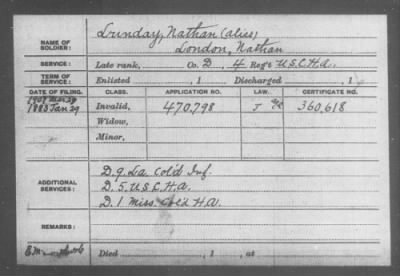 NAME OF SOLDIER: Lunday, Nathan (alias)
London, Nathan
SERVICE: Late rank, Co. D, 4 Regt U.S.C.H.A.
TERM OF SERVICE: Enlisted , 1 Discharged , 1
DATE OF FILING. CLASS. APPLICATION NO. LAW. CERTIFICATE NO.
1883 Jan 29 Invalid, 470,798 360,618
Widow,
Minor,
ADDITIONAL SERVICES: D. 9 La. Col'd Inf.
D. 5 U.S.C.H.A.
D. 1 Miss. Col'd H.A.
REMARKS:
Died , 1 , at